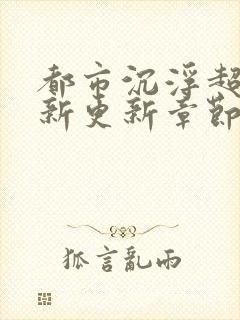 都市沉浮超
新更新章節
狐言亂雨